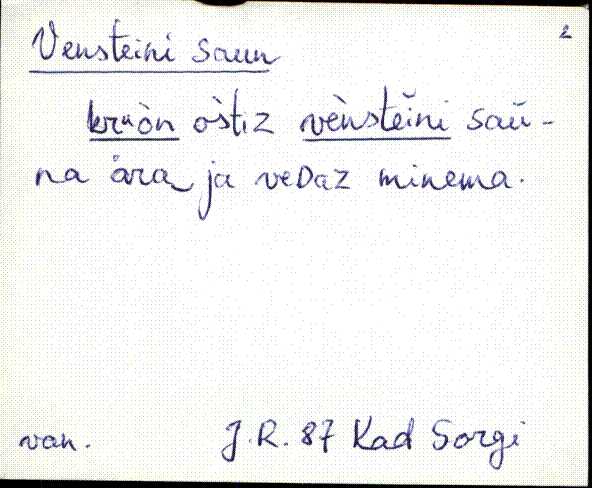 Vensteini saun
2
krᵘòn òstiz vènstĕini saŭ-
na ära ja veDaz minema.
van. J.R. 87 Kad Sorgi